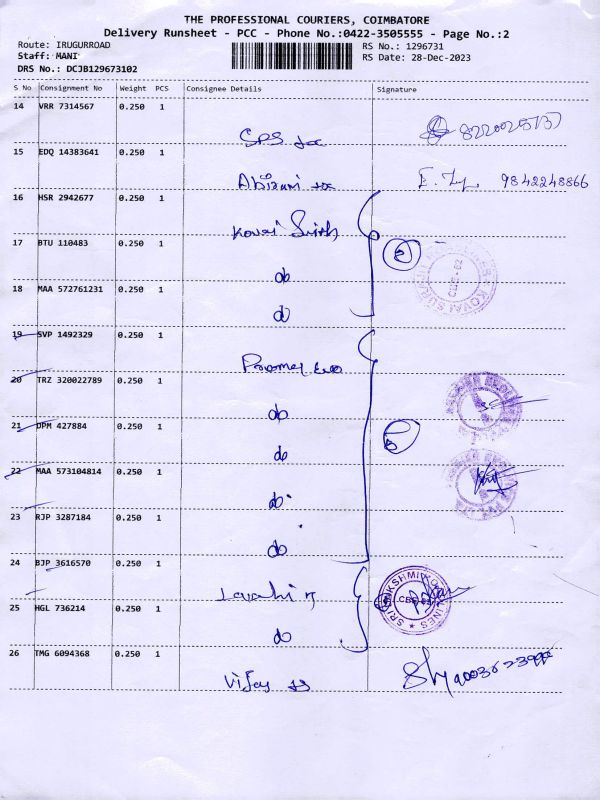 THE PROFESSIONAL COURIERS, COIMBATORE
Delivery Runsheet - PCC - Phone No.:0422-3505555 - Page No.:2
Route: IRUGURROAD
RS No.: 1296731
Staff: MANI
RS Date: 28-Dec-2023
DRS No.: DCJB129673102
S No Consignment No Weight PCS Consignee Details Signature
14 VRR 7314567 0.250 1
15 EDQ 14383641 0.250 1
E. 9842248866
16 HSR 2942677 0.250 1
Kovai
17 BTU 110483 0.250 1
do
18 MAA 572761231 0.250 1
do
19 SVP 1492329 0.250 1
20 TRZ 320022789 0.250 1
do
21 DPM 427884 0.250 1
do
22 MAA 573104814 0.250 1
do
23 RJP 3287184 0.250 1
do
24 BJP 3616570 0.250 1
SRI LAKSHMI
25 HGL 736214 0.250 1
do
26 TMG 6094368 0.250 1
Vijay